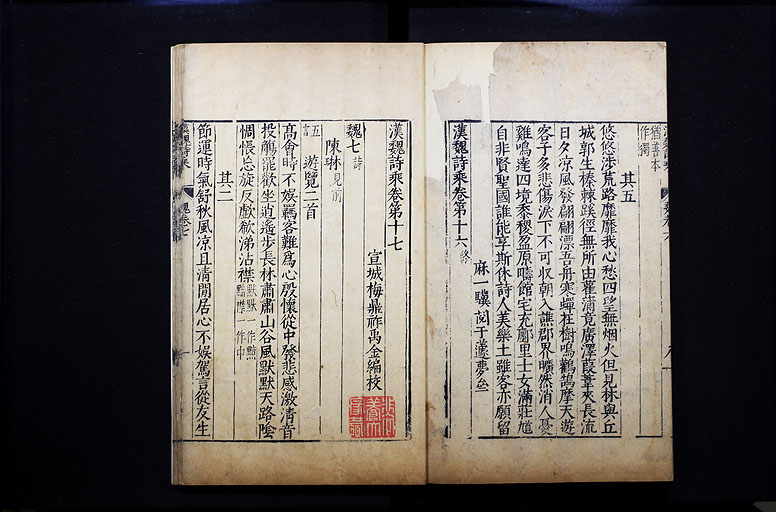 猶善本
作獨
其五
悠悠涉荒路靡靡我心愁四望無烟火但見林與丘
城郭生榛棘蹊徑無所由雚蒲竟廣澤葭葦夾長流
日夕凉風發翩翩漂吾舟寒蟬在樹鳴鸛鵠摩天遊
客子多悲傷淚下不可収朝入譙郡界曠然消人憂
雞鳴達四境黍稷盈原疇館宅充廛里士女滿莊馗
自非賢聖國誰能享斯休詩人美樂土雖客亦願留
麻一驥
漢魏詩乘卷第十六終
漢魏詩乘卷第十七
宣城梅鼎祚禹金編校
魏七詩
陳琳見前
五言
遊覽二首
高會時不娛羈客難爲心殷懷從中發悲感激清音
投觴罷歡坐逍遙步長林蕭蕭山谷風默默天路陰
惆悵忘旋反歔欷涕沾襟
其二
節運時氣舒秋風凉且清閒居心不娛駕言從友生